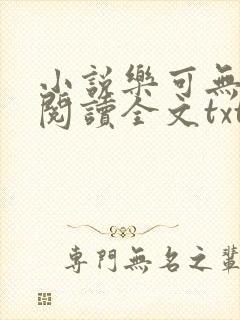 小說樂可無
閱讀全文txt
專門無名之輩